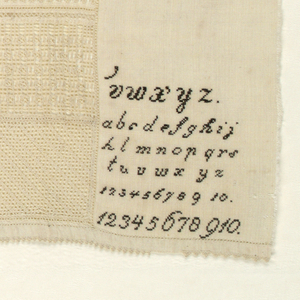 vwxyz.
abcdefghij
klmnopqrs
tuvwxyz
12345678910.
12345678910.